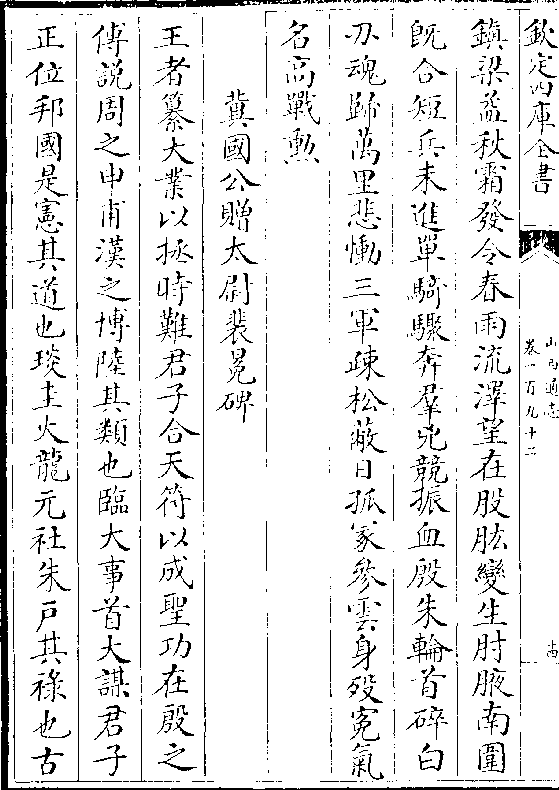 欽定四庫全書
山西通志
卷一百九十二
十四
鎮梁益秋霜發令春雨流澤望在股肱變生肘腋南圍
旣合短兵未進單騎驟奔羣兇競振血殷朱輪首碎白
刃魂歸萬里悲慟三軍疎松蔽日孤冢參雲身殁寃氣
名高戰勲
冀國公贈太尉裴冕碑
王者纂大業以拯時難君子合天符以成聖功在殷之
傅說周之申甫漢之博陸其類也臨大事首大謀君子
正位邦國是憲其道也琰圭火龍元社朱戶其祿也古